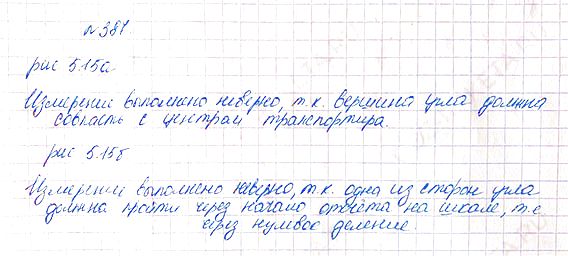 № 387.
рис 5.15а
Измерение выполнено неверно, т.к. вершина угла должна
совпасть с центрам транспортира.
рис 5.15б
Измерение выполнено неверно, т.к. одна из сторон угла
должна пройти через начало отчёта на шкале, т.е
через нулевое деление.